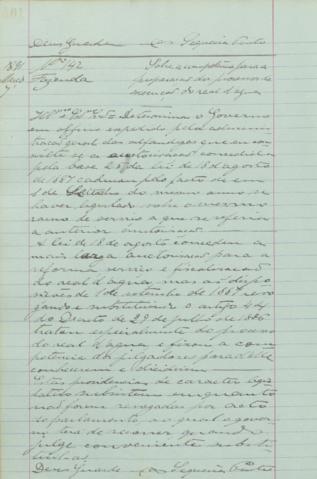 Deus Guarde a Sequeira Pinto
1891 Nº 142 Sobre a competencia para a
Maio Fazenda preparação dos processos de
7 isenção do real d'agua
Illmo e Exmo Snr Determina o Governo
em officio expedido pela adminis
tração geral das alfandegas que eu con
sulte se a auctorisação concedida
pela base 2ª da lei de 18 de agosto
de 1887 caducou pelo facto de em
1 de Setembro do mesmo anno se
haver legislado sobre o
ramo de serviço a que se referia
a anterior auctorisação
A lei de 18 de agosto concedeu a
mais larga auctorisação para a
reforma serviço e fiscalisação
do real d'agua, mas as dispo
sições de 1 de setembro de 1887 revo
gando e substituindo o artigo
do Decreto de 29 de julho de 1886
tratam especialmente do processo
do real d'agua e fixou a com
petencia dos julgadores para d'elle
conhecerem e decidirem
Estas providencias de caracter legis
lativo subsistem emquanto
não forem revogadas por acto
do parlamento ao qual o gover
no terá de recorrer quando
julge conveniente substi
tuil-as.
Deus Guarde a Sequeira Pinto